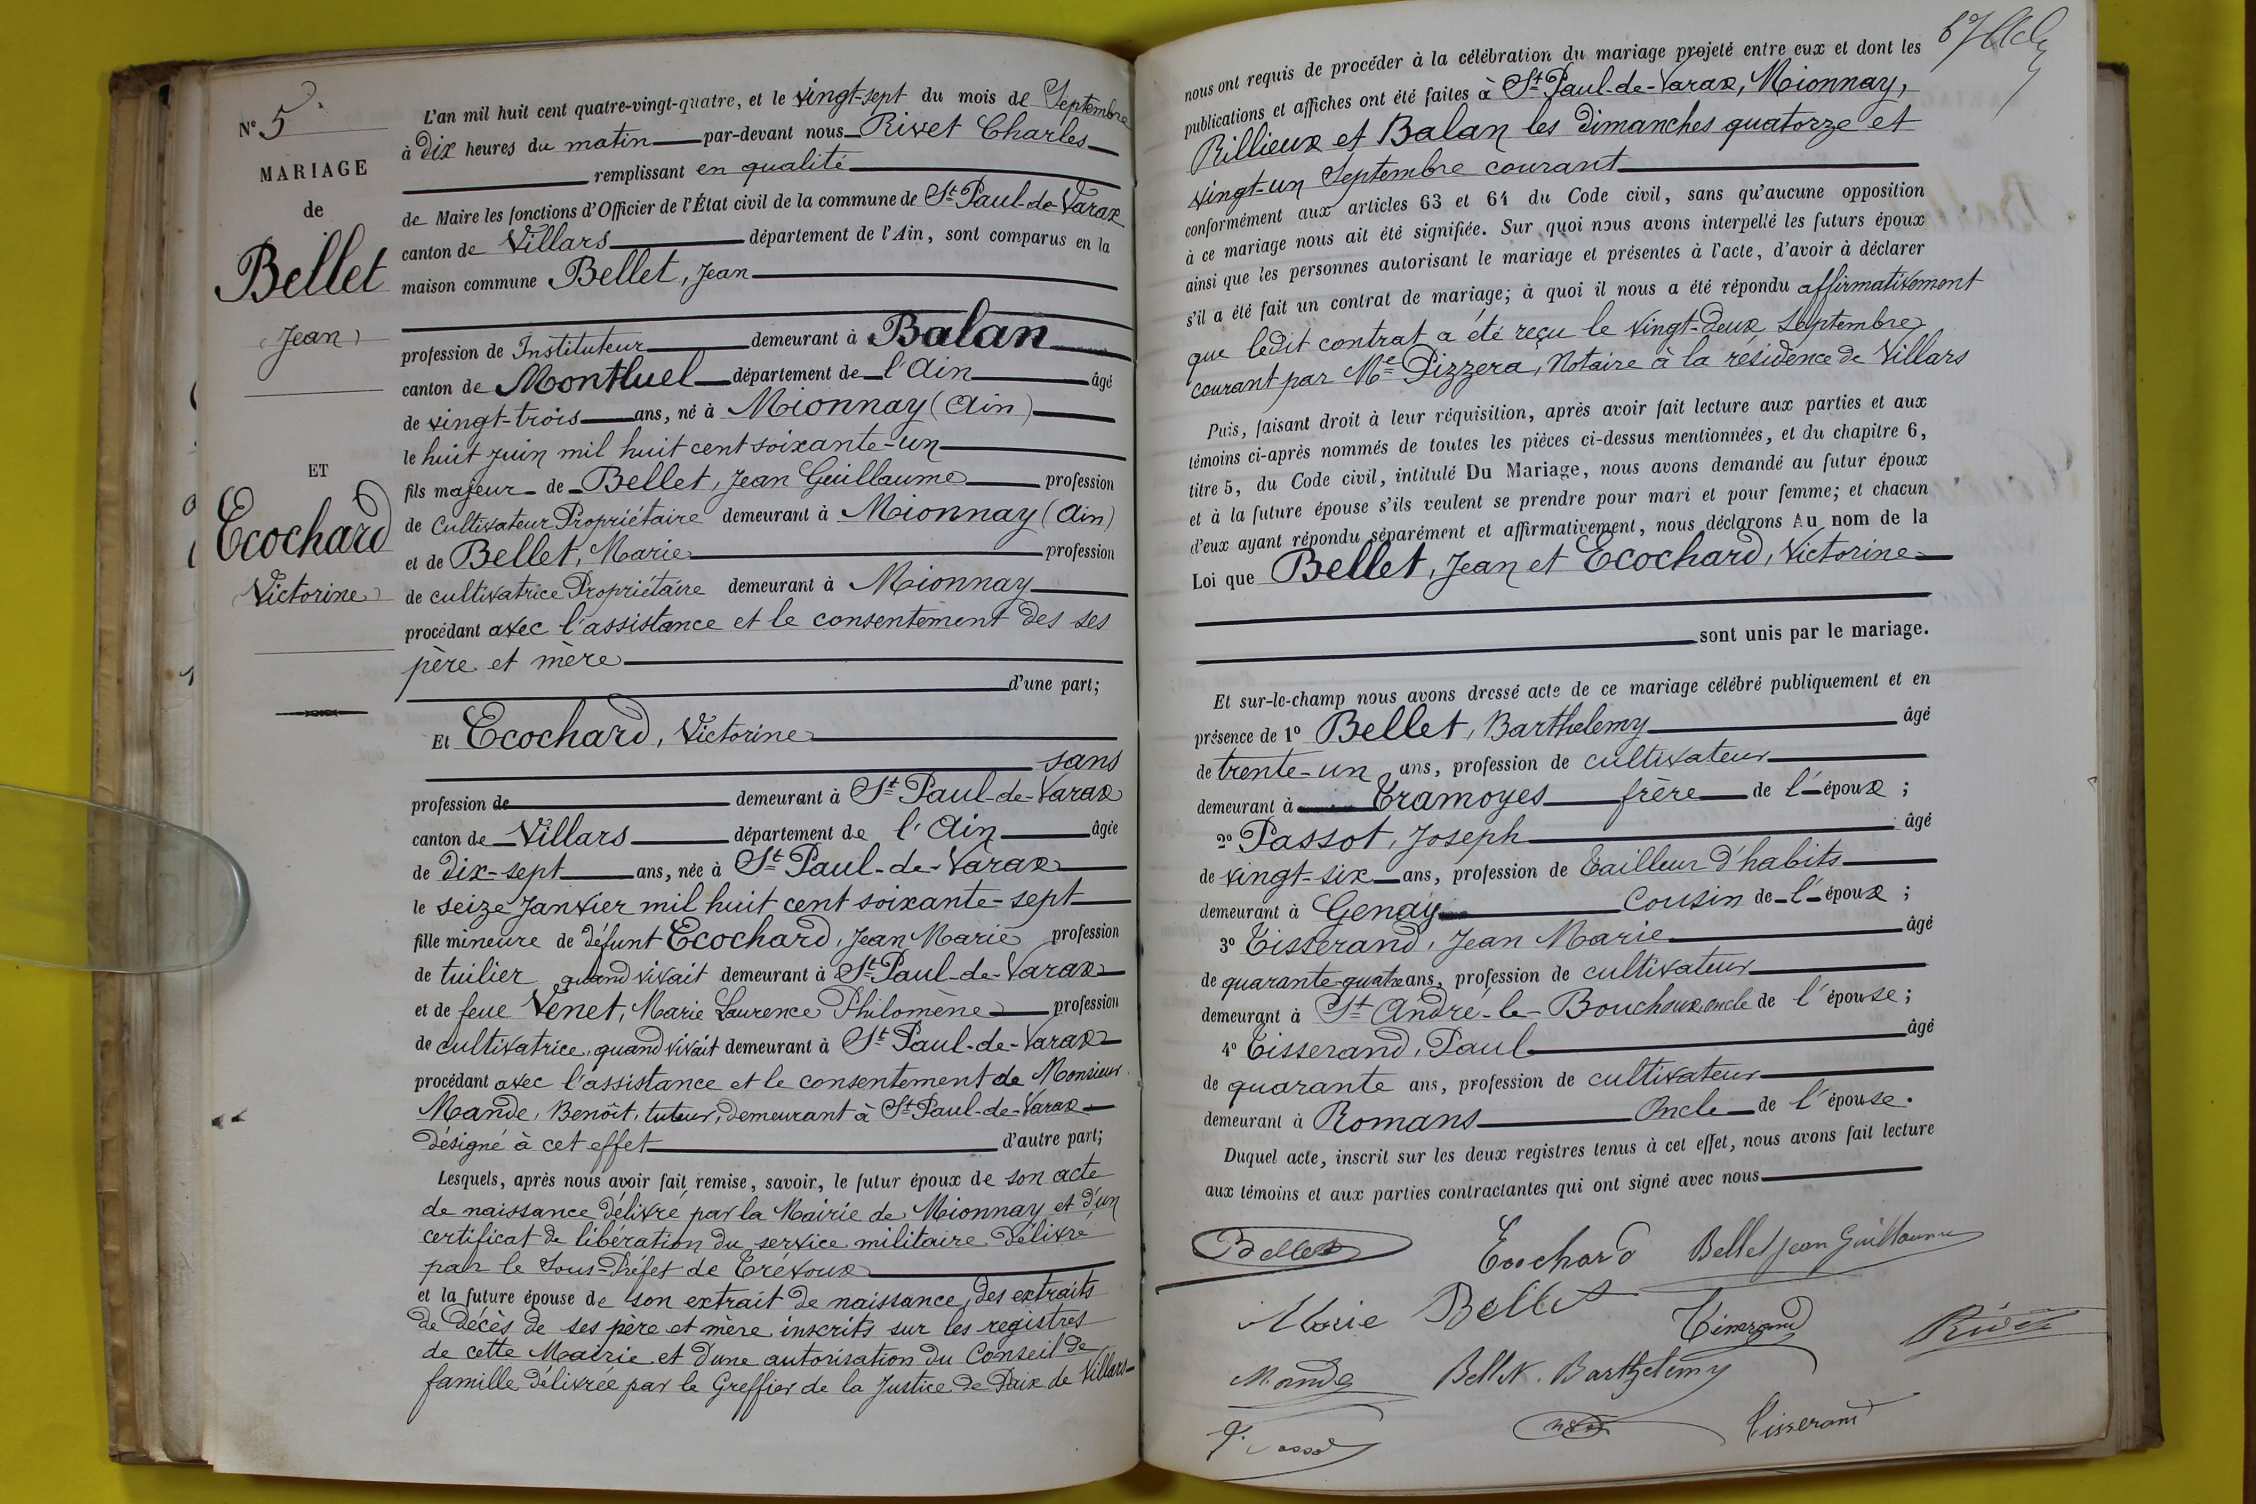 N° 5
MARIAGE
de
Bellet
(Jean)
ET
Ecochard
(Victorine)
L'an mil huit cent quatre-vingt-quatre, et le vingt-sept du mois de Septembre
à dix heures du matin par-devant nous Rivet Charles
remplissant en qualité
de Maire les fonctions d'Officier de l'État civil de la commune de St Paul-de-Varax
canton de Villars département de l'Ain, sont comparus en la
maison commune Bellet, Jean
profession de Instituteur demeurant à Balan
canton de Montluel département de l'Ain âgé
de vingt-trois ans, né à Mionnay (Ain)
le huit juin mil huit cent soixante-un
fils majeur de Bellet, Jean Guillaume profession
de Cultivateur Propriétaire demeurant à Mionnay (Ain)
et de Bellet, Marie profession
de cultivatrice Propriétaire demeurant à Mionnay
procédant avec l'assistance et le consentement des ses
père et mère
d'une part;
Et Ecochard, Victorine
sans
profession de demeurant à St Paul-de-Varax
canton de Villars département de l'Ain âgée
de dix-sept ans, née à St Paul-de-Varax
le seize Janvier mil huit cent soixante-sept
fille mineure de défunt Ecochard, Jean Marie profession
de tuilier quand vivait demeurant à St Paul-de-Varax
et de feue Venet, Marie Laurence Philomène profession
de cultivatrice, quand vivait demeurant à St Paul-de-Varax
procédant avec l'assistance et le consentement de Monsieur
Mande, Benoît, tuteur, demeurant à St Paul-de-Varax
désigné à cet effet d'autre part;
Lesquels, après nous avoir fait remise, savoir, le futur époux de son acte
de naissance délivré par la Mairie de Mionnay et d'un
certificat de libération du service militaire délivré
par le Sous-Préfet de Trévoux
et la future épouse de son extrait de naissance, des extraits
de décès de ses père et mère inscrits sur les registres
de cette Mairie et d'une autorisation du Conseil de
famille délivrée par le Greffier de la Justice de Paix de Villars
nous ont requis de procéder à la célébration du mariage projeté entre eux et dont les
publications et affiches ont été faites à St Paul-de-Varax, Mionnay,
Rillieux et Balan les dimanches quatorze et
vingt-un Septembre courant
conformément aux articles 63 et 64 du Code civil, sans qu'aucune opposition
à ce mariage nous ait été signifiée. Sur quoi nous avons interpellé les futurs époux
ainsi que les personnes autorisant le mariage et présentes à l'acte, d'avoir à déclarer
s'il a été fait un contrat de mariage; à quoi il nous a été répondu affirmativement
que ledit contrat a été reçu le vingt-deux Septembre
courant par Me Pizzera, Notaire à la résidence de Villars
Puis, faisant droit à leur réquisition, après avoir fait lecture aux parties et aux
témoins ci-après nommés de toutes les pièces ci-dessus mentionnées, et du chapitre 6,
titre 5, du Code civil, intitulé Du Mariage, nous avons demandé au futur époux
et à la future épouse s'ils veulent se prendre pour mari et pour femme; et chacun
d'eux ayant répondu séparément et affirmativement, nous déclarons Au nom de la
Loi que Bellet, Jean et Ecochard, Victorine
sont unis par le mariage.
Et sur-le-champ nous avons dressé acte de ce mariage célébré publiquement et en
présence de 1° Bellet, Barthelemy âgé
de trente-un ans, profession de cultivateur
demeurant à Tramoyes frère de l'époux;
2° Passot, Joseph âgé
de vingt-six ans, profession de Tailleur d'habits
demeurant à Genay Cousin de l'époux;
3° Tisserand, Jean Marie âgé
de quarante-quatre ans, profession de cultivateur
demeurant à St André-le-Bouchoux oncle de l'épouse;
4° Tisserand, Paul âgé
de quarante ans, profession de cultivateur
demeurant à Romans Oncle de l'épouse.
Duquel acte, inscrit sur les deux registres tenus à cet effet, nous avons fait lecture
aux témoins et aux parties contractantes qui ont signé avec nous
Bellet Ecochard Bellet Jean Guillaume
Marie Bellet Tisserand Rivet
Mande Bellet Barthelemy
J. Passot Tisserand